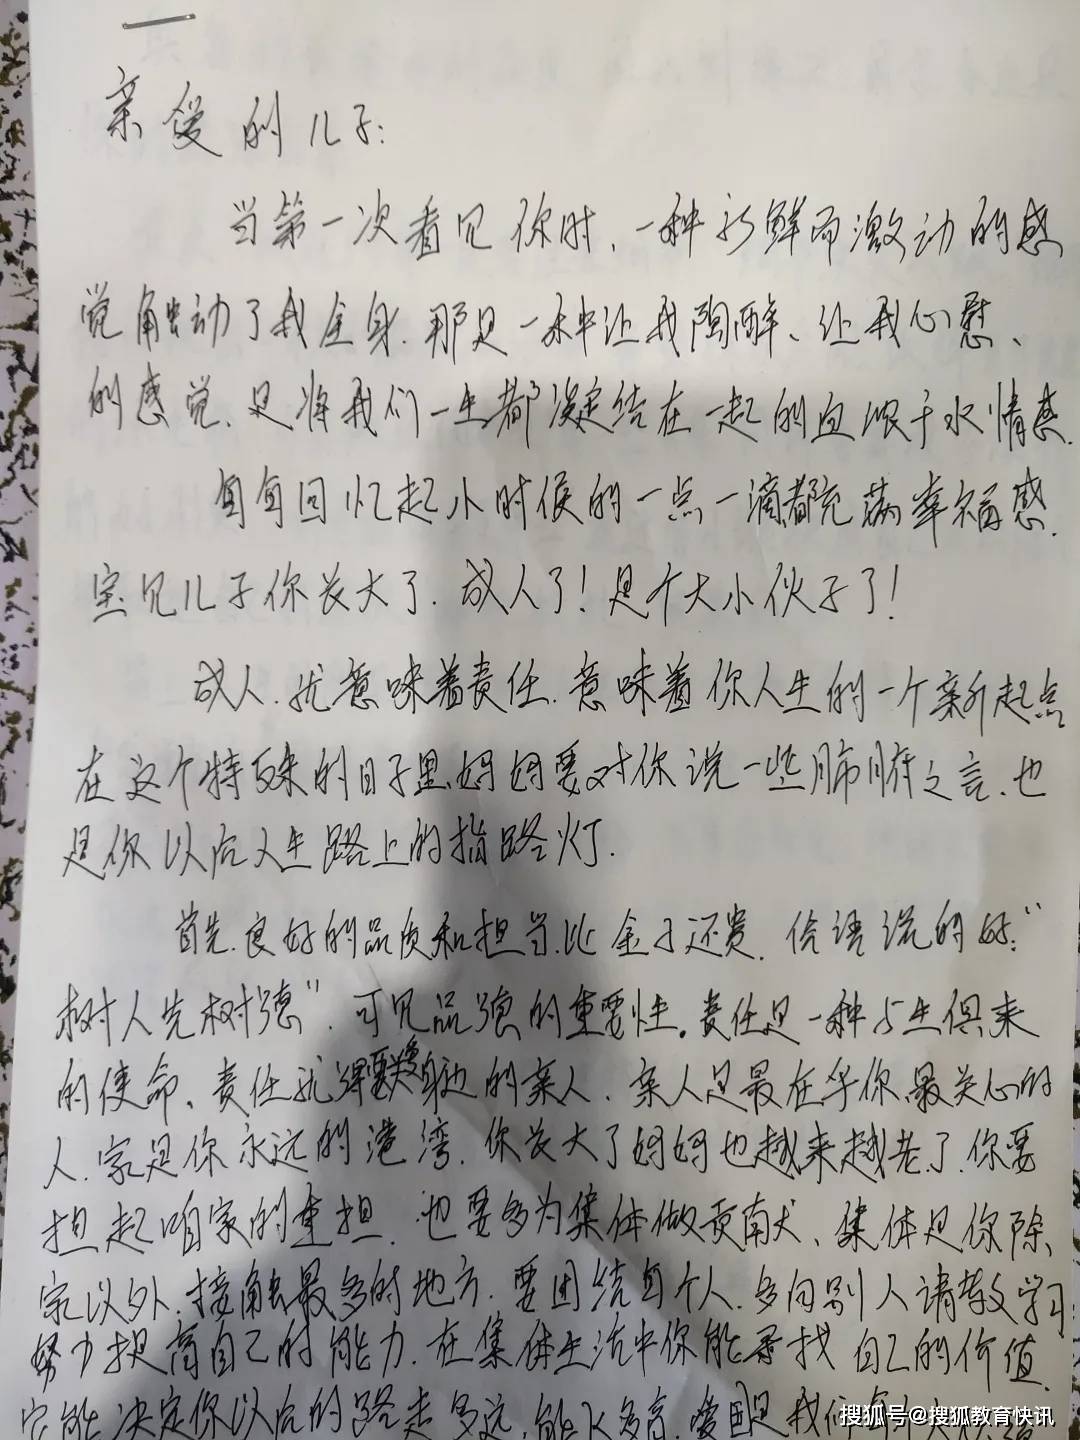 亲爱的儿子:
当第一次看见你时、一种新鲜而激动的感
觉触动了我全身.那是一种让我陶醉、让我心慰、
的感觉.是将我们一生都凝结在一起的血浓于水情感.
每每回忆起小时候的一点一滴都充满幸福感.
宝贝儿子你长大了.成人了!是个大小伙子了!
成人.就意味着责任.意味着你人生的一个新起点
在这个特殊的日子里.妈妈要对你说一些肺腑之言.也
是你以后人生路上的指路灯.
首先.良好的品质和担当.比金子还贵.俗语说的好:“
树人先树德”.可见品德的重要性。责任是一种与生俱来
的使命、责任就是要关爱身边的亲人.亲人是最在乎你.最关心的
人.家是你永远的港湾.你长大了妈妈也越来越老了.你要
担起咱家的重担.也要多为集体做贡献、集体是你除
家以外.接触最多的地方.要团结每个人.多向别人请教学习
努力提高自己的能力.在集体生活中你能寻找自己的价值.
它能决定你以后的路走多远.能飞多高.爱国是我们每个
搜狐号@搜狐教育快讯